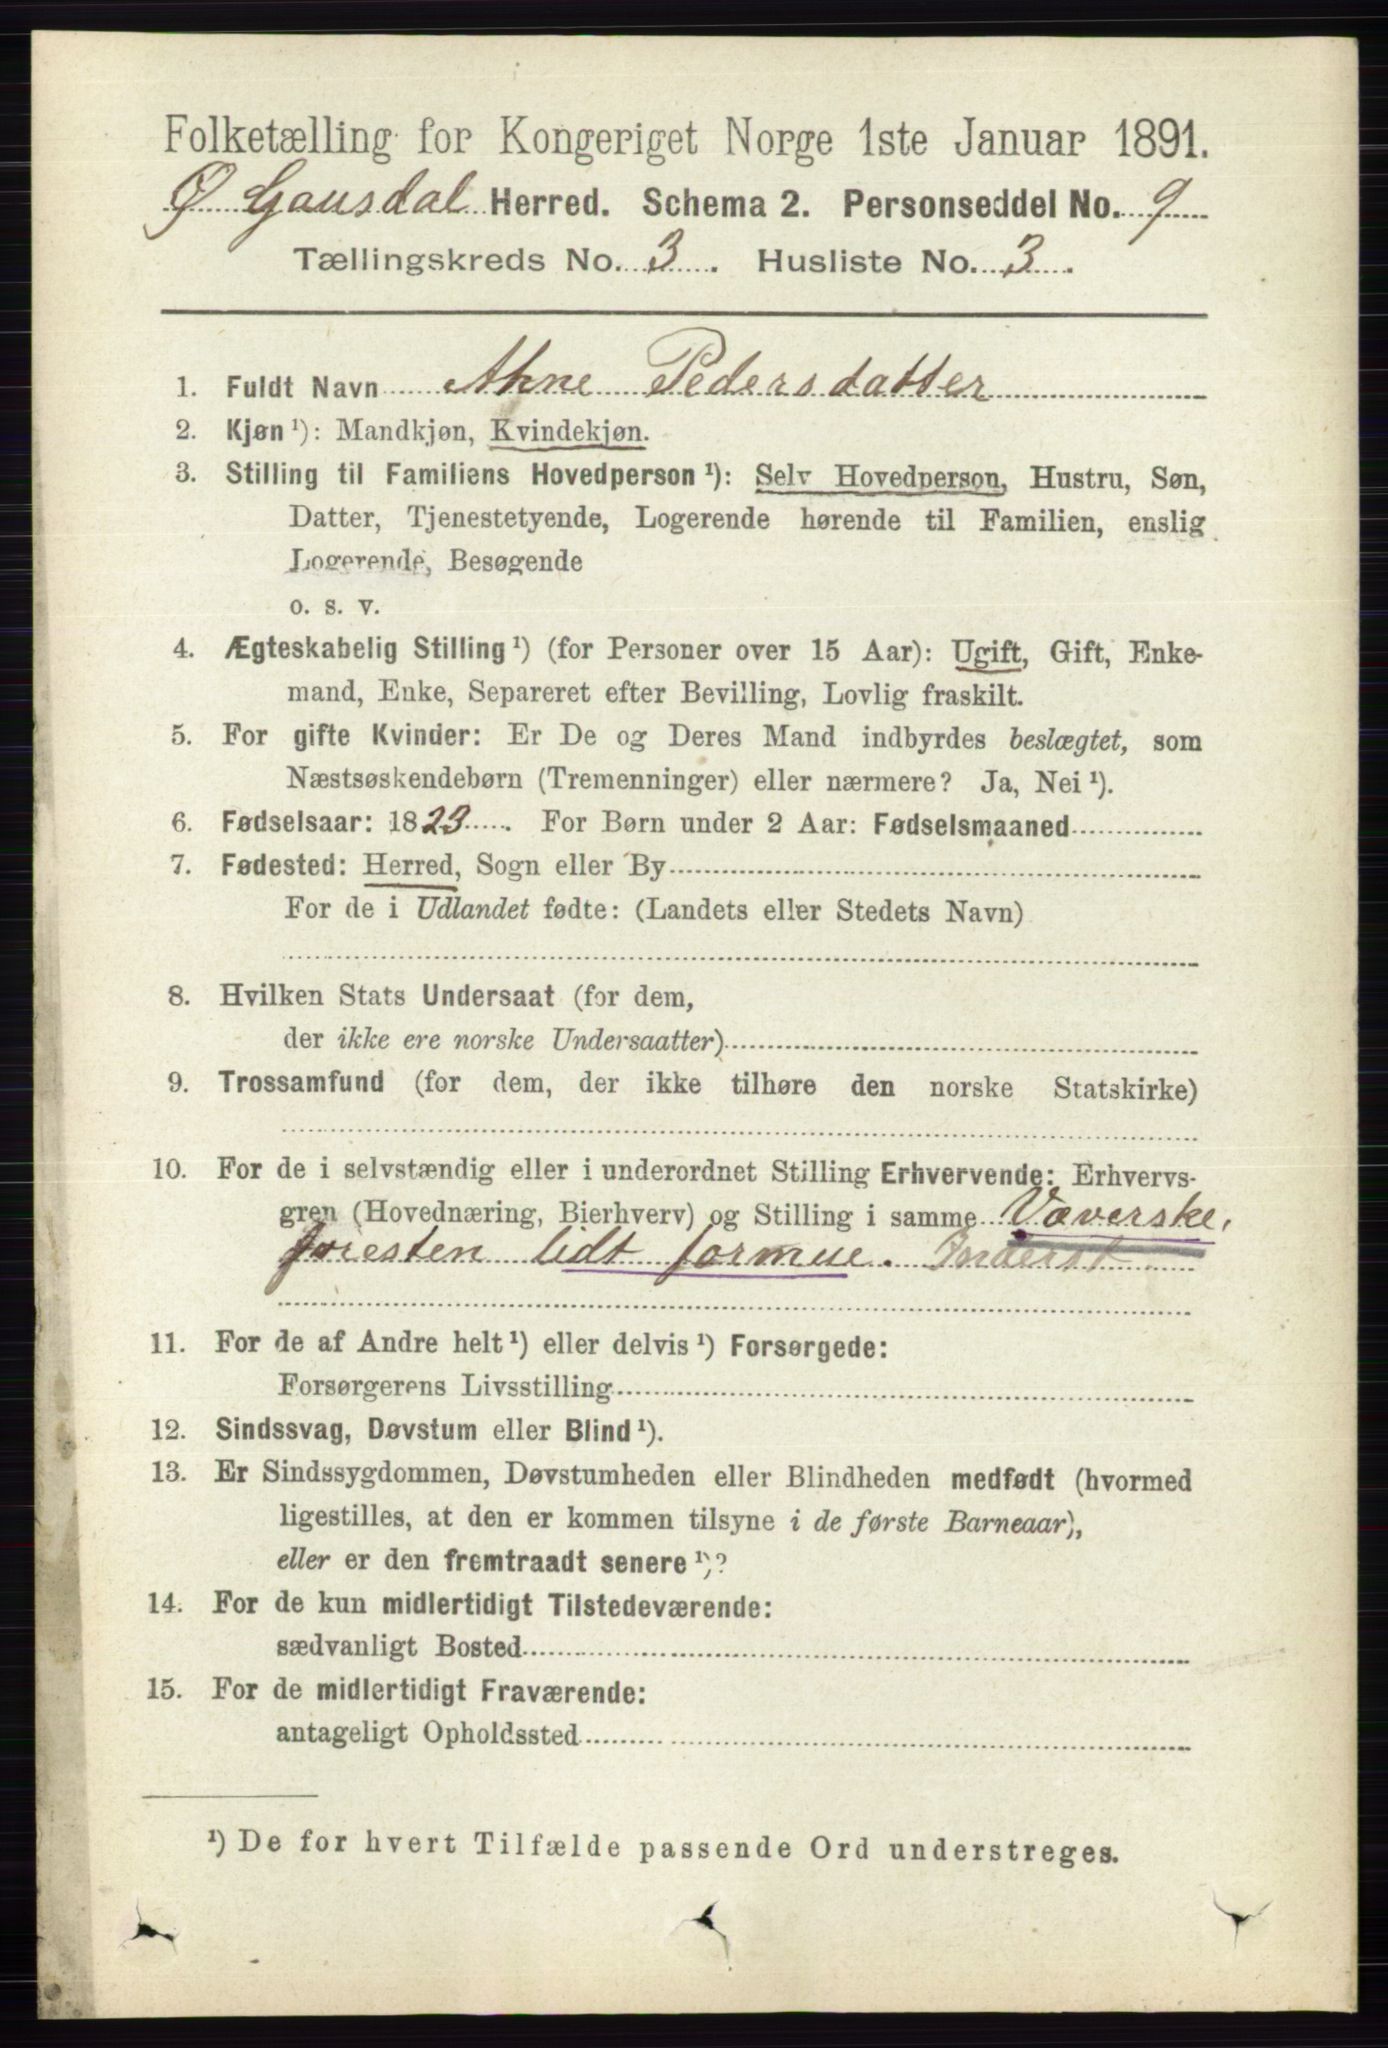 Folketælling for Kongeriget Norge 1ste Januar 1891.
Ø Gausdal Herred. Schema 2. Personseddel No. 9
Tællingskreds No. 3. Husliste No. 3.
1. Fuldt Navn Anne Pedersdatter
2. Kjøn ¹): Mandkjøn, Kvindekjøn.
3. Stilling til Familiens Hovedperson ¹): Selv Hovedperson, Hustru, Søn,
Datter, Tjenestetyende, Logerende hørende til Familien, enslig
Logerende, Besøgende
o. s. v.
4. Ægteskabelig Stilling ¹) (for Personer over 15 Aar): Ugift, Gift, Enke-
mand, Enke, Separeret efter Bevilling, Lovlig fraskilt.
5. For gifte Kvinder: Er De og Deres Mand indbyrdes beslægtet, som
Næstsøskendebørn (Tremenninger) eller nærmere? Ja, Nei ¹).
6. Fødselsaar: 1823. For Børn under 2 Aar: Fødselsmaaned
7. Fødested: Herred, Sogn eller By
For de i Udlandet fødte: (Landets eller Stedets Navn)
8. Hvilken Stats Undersaat (for dem,
der ikke ere norske Undersaatter)
9. Trossamfund (for dem, der ikke tilhøre den norske Statskirke)
10. For de i selvstændig eller i underordnet Stilling Erhvervende: Erhvervs-
gren (Hovednæring, Bierhverv) og Stilling i samme Væverske,
foresten lidt formue. Inderst
11. For de af Andre helt ¹) eller delvis ¹) Forsørgede:
Forsørgerens Livsstilling
12. Sindssvag, Døvstum eller Blind ¹).
13. Er Sindssygdommen, Døvstumheden eller Blindheden medfødt (hvormed
ligestilles, at den er kommen tilsyne i de første Barneaar),
eller er den fremtraadt senere ¹)?
14. For de kun midlertidigt Tilstedeværende:
sædvanligt Bosted
15. For de midlertidigt Fraværende:
antageligt Opholdssted
¹) De for hvert Tilfælde passende Ord understreges.